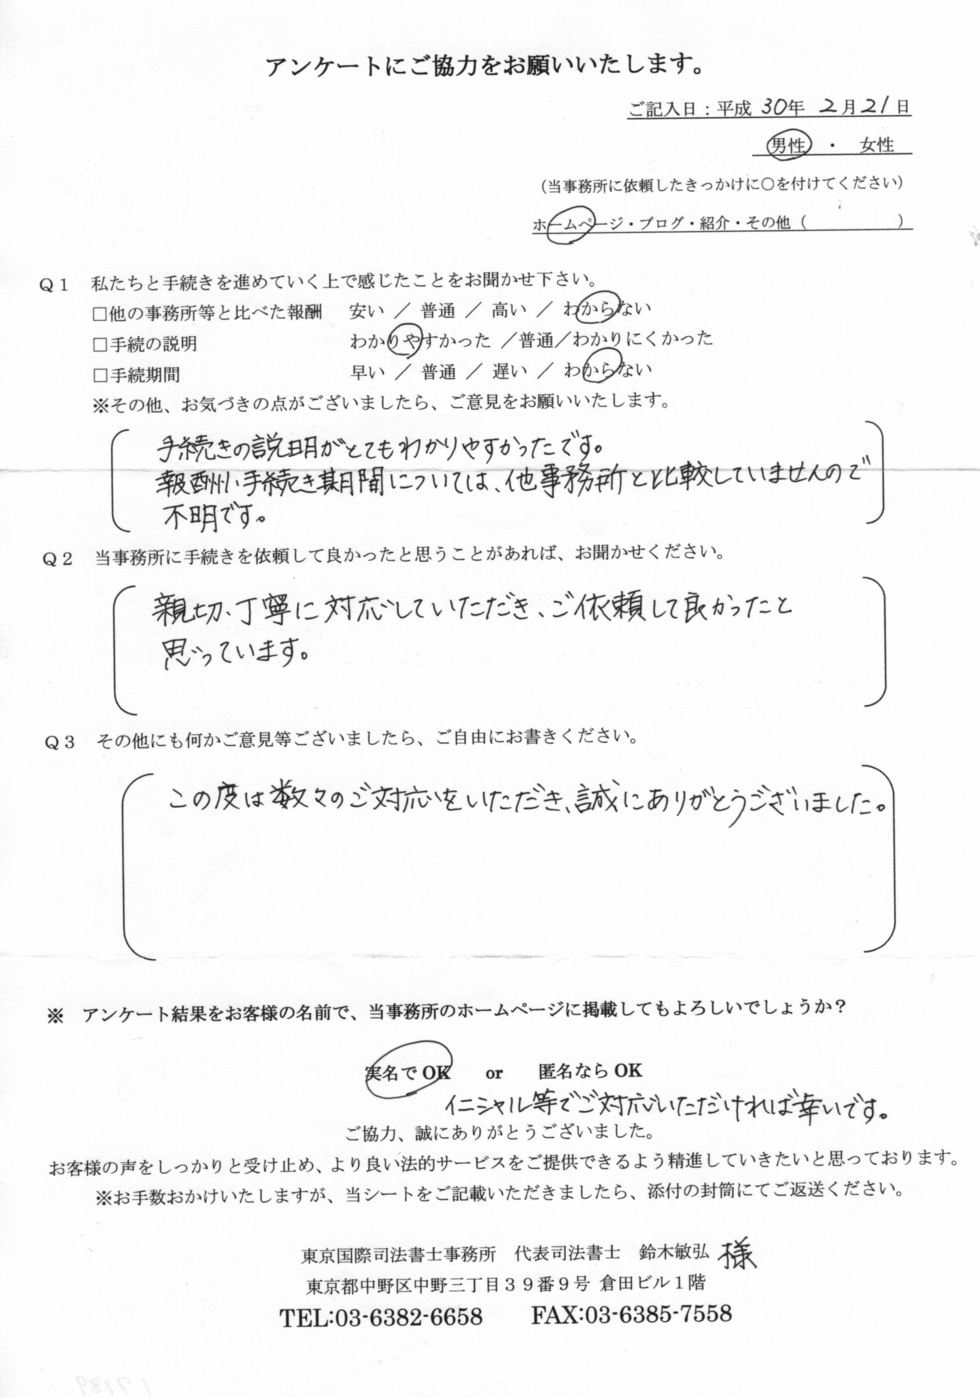 アンケートにご協力をお願いいたします。
ご記入日：平成 30年 2月21日
男性 ・ 女性
（当事務所に依頼したきっかけに○を付けてください）
ホームページ・ブログ・紹介・その他（　　　　　）
Ｑ１　私たちと手続きを進めていく上で感じたことをお聞かせ下さい。
□他の事務所等と比べた報酬　安い ／ 普通 ／ 高い ／ わからない
□手続の説明　わかりやすかった ／普通／わかりにくかった
□手続期間　早い ／ 普通 ／ 遅い ／ わからない
※その他、お気づきの点がございましたら、ご意見をお願いいたします。
手続きの説明がとてもわかりやすかったです。
報酬、手続き期間については、他事務所と比較していませんので
不明です。
Ｑ２　当事務所に手続きを依頼して良かったと思うことがあれば、お聞かせください。
親切、丁寧に対応していただき、ご依頼して良かったと
思っています。
Ｑ３　その他にも何かご意見等ございましたら、ご自由にお書きください。
この度は数々のご対応をいただき、誠にありがとうございました。
※　アンケート結果をお客様の名前で、当事務所のホームページに掲載してもよろしいでしょうか？
実名でOK　or　匿名ならOK
イニシャル等でご対応いただければ幸いです。
ご協力、誠にありがとうございました。
お客様の声をしっかりと受け止め、より良い法的サービスをご提供できるよう精進していきたいと思っております。
※お手数おかけいたしますが、当シートをご記載いただきましたら、添付の封筒にてご返送ください。
東京国際司法書士事務所　代表司法書士　鈴木敏弘 様
東京都中野区中野三丁目３９番９号 倉田ビル１階
TEL:03-6382-6658　FAX:03-6385-7558